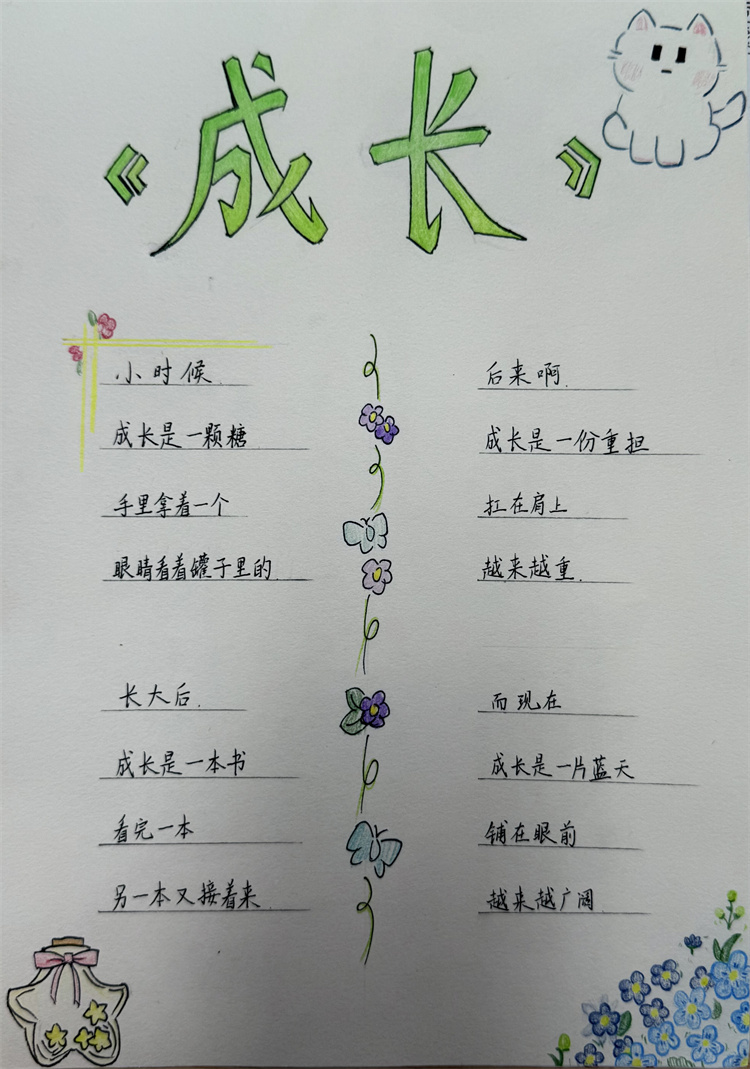 《成长》
小时候
成长是一颗糖
手里拿着一个
眼睛看着罐子里的
长大后
成长是一本书
看完一本
另一本又接着来
后来啊
成长是一份重担
扛在肩上
越来越重
而现在
成长是一片蓝天
铺在眼前
越来越广阔